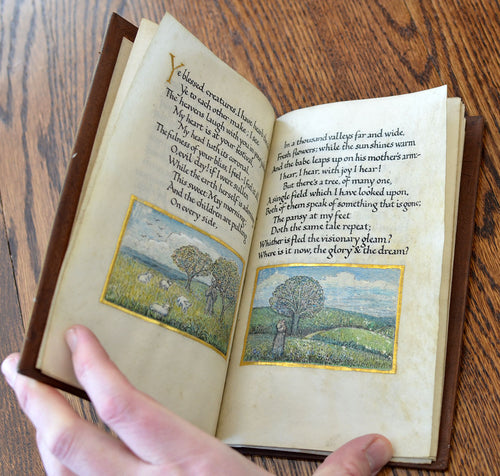 Ye blessed creatures, I have heard
Ye to each other make; I see
The heavens laugh with you in your
My heart is at your festival,
My head hath its coronal,
The fulness of your bliss, I feel, I feel it
O evil day! if I were sullen
While the earth herself is
This sweet May-morning,
And the children are pulling
On every side.
In a thousand valleys far and wide,
Fresh flowers; while the sun shines warm
And the babe leaps up on his mother's arm:-
I hear, I hear, with joy I hear!
But there's a tree, of many one,
A single field which I have looked upon,
Both of them speak of something that is gone:
The pansy at my feet
Doth the same tale repeat:
Whither is fled the visionary gleam?
Where is it now, the glory & the dream?